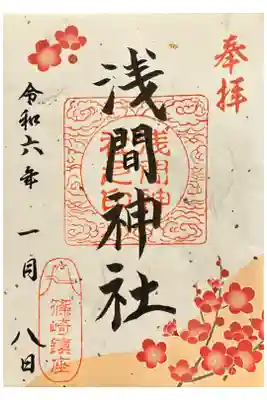 奉拝
浅間神社
令和六年 一月 八日
篠崎鎮座